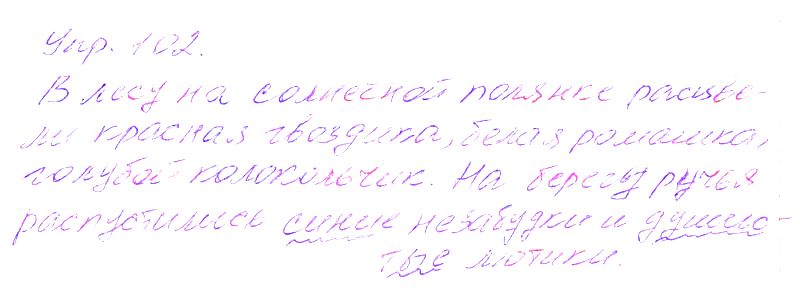 Упр. 102.
В лесу на солнечной полянке расцве-
ли красная гвоздика, белая ромашка,
голубой колокольчик. На берегу ручья
распустились синие незабудки и душис-
тые лютики.